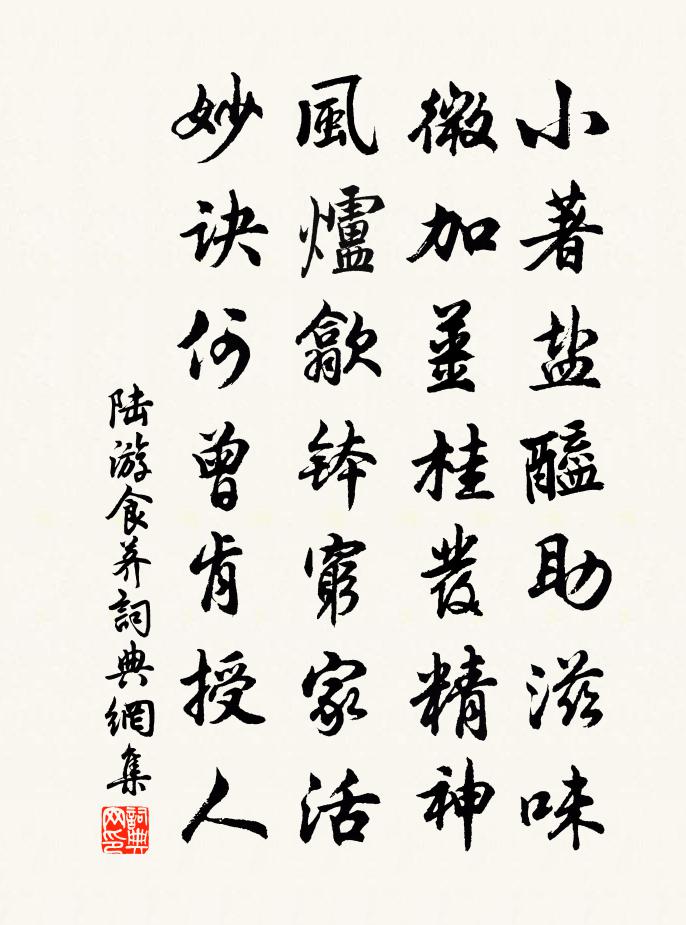 小著盐醯助滋味
微加薑桂發精神
風爐歙钵窮家活
妙诀何曾肯授人
陆游食荠詞典網集
詞典网印